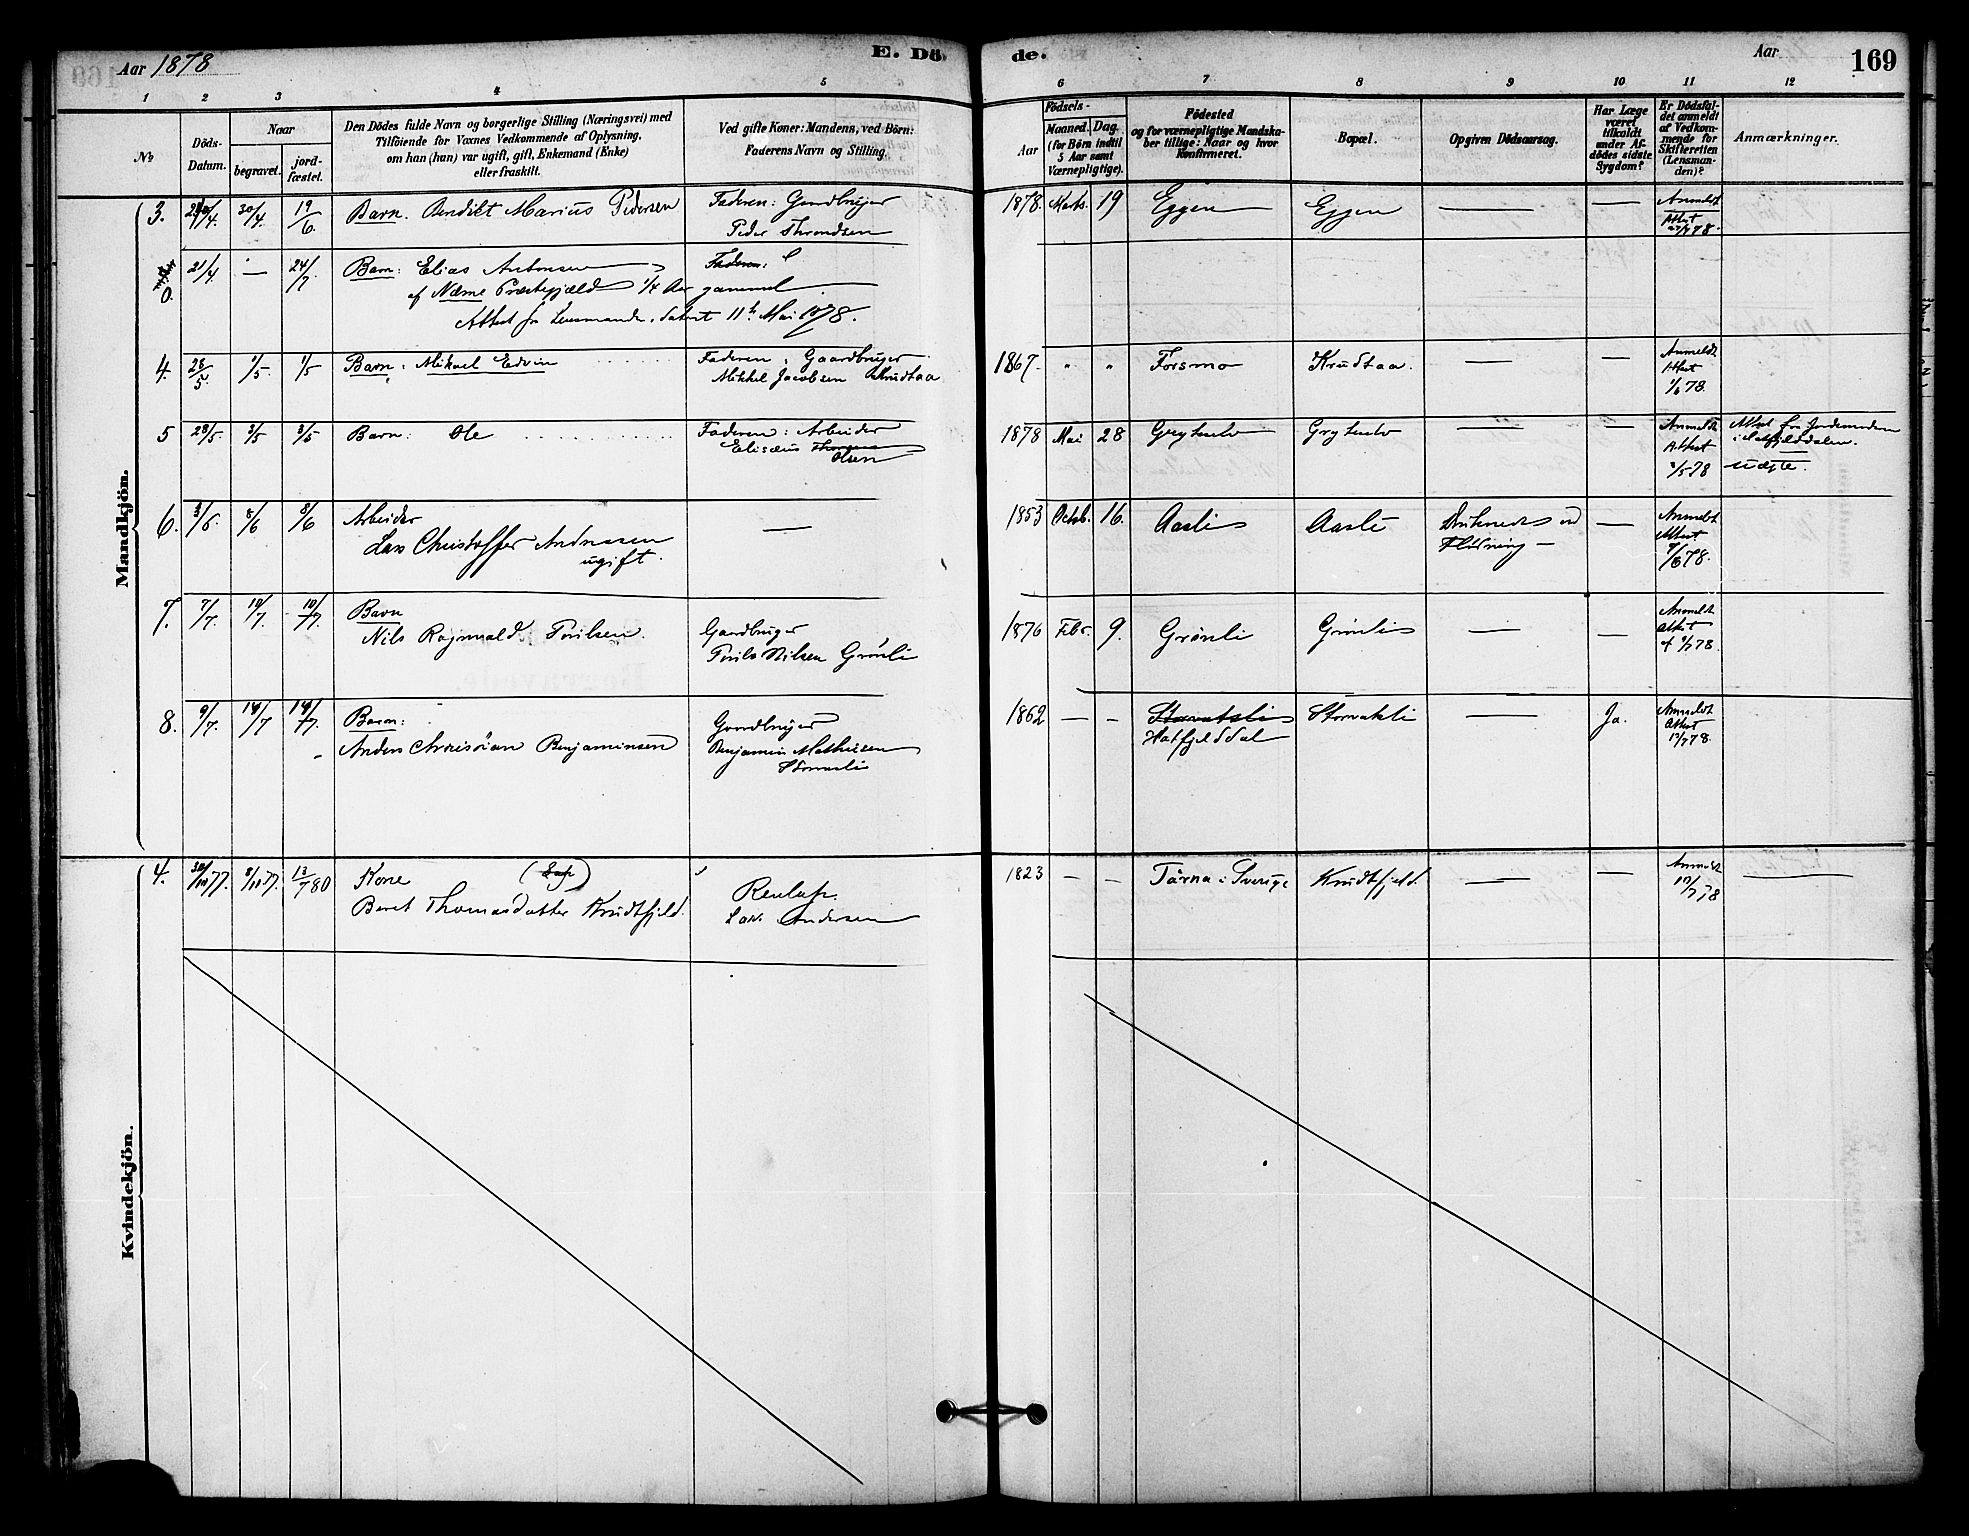 Aar 1878
E. Dö
de.
Aar
169
1 2 3 4 5 6 7 8 9 10 11 12
No
Döds-Datum.
Naar
begravet.
jord-fæstet.
Den Dödes fulde Navn og borgerlige Stilling (Næringsvei) med
Tilföiende for Voxnes Vedkommende af Oplysning,
om han (hun) var ugift, gift, Enkemand (Enke)
eller fraskilt.
Ved gifte Koner: Mandens, ved Börn:
Faderens Navn og Stilling.
Födsels-
Aar
Maaned. Dag.
(for Börn indtil
5 Aar samt
Værnepligtige).
Födested
og for værnepligtige Mandska-
ber tillige: Naar og hvor
Konfirmeret.
Bopæl.
Opgiven Dödsaarsag.
Har Læge
været
tilkaldt
under Af-
dödes sidste
Sygdom?
Er Dödsfal-
det anmeldt
af Vedkom-
mende for
Skifteretten
(Lensman-
den)?
Anmærkninger.
Mandkjön.
3. 30/4. 19/6. Barn. Bendikt Marius Pedersen
Faderen: Gaardbruger
Peder Throndsen
1878. Marts. 19 Eggen Eggen — — Anmeldt
Attest
0. 21/4 — 24/7 Barn: Elias Antonsen
Faderen:
af Næsne Præstegjæld 1/4 Aar gammel
Attest fra Lensmanden, datert 11te Mai 1878.
4. 28/5. 1/5 1/5 Barn: Mikael Edvin
Faderen: Gaardbruger
Mikkel Jacobsen Krudtaa
1867. " " Forsmo Krudtaa. — — Anmeldt
Attest
1/6 78.
5 28/5. 3/5 3/5 Barn: Ole
Faderen: Arbeider
Elisæus
Olsen
1878 Mai 28 Grytselv Grytselv — — Anmeldt
Attest
/5 78
Attest fra Jordemoderen
i Hatfjelddalen.
6. 3/6. 8/6 8/6 Arbeider
Lars Christoffer Andreasen
ugift.
—
1853 Octob. 16. Aasli Aasli Druknede ved
Flødning — — Anmeldt
Attest
/6 78.
7. 7/7. 10/7. 10/7. Barn
Nils Ragnvald Torilsen.
Gaardbruger
Torils Nilsen Grönli
1876 Febr. 9. Grönli Grönli — — Anmeldt
Attest
af 9/7 78.
8. 9/7. 14/7 14/7. Barn:
Anders Benjaminsen
Gaardbruger
Benjamin Mathisen
1862 — — Storvatsli Storvatsli — Ja. Anmeldt
Hatfjelddal
Attest
12/7 78.
Kvindekjön.
4. 77. 77. 13/7 80 Kone
Beret Thomasdatter Krudtfjeld.
Lars Andersen
1823 — — Tärna i Sverige Krudtfjeld. — — Anmeldt
/7 78 —